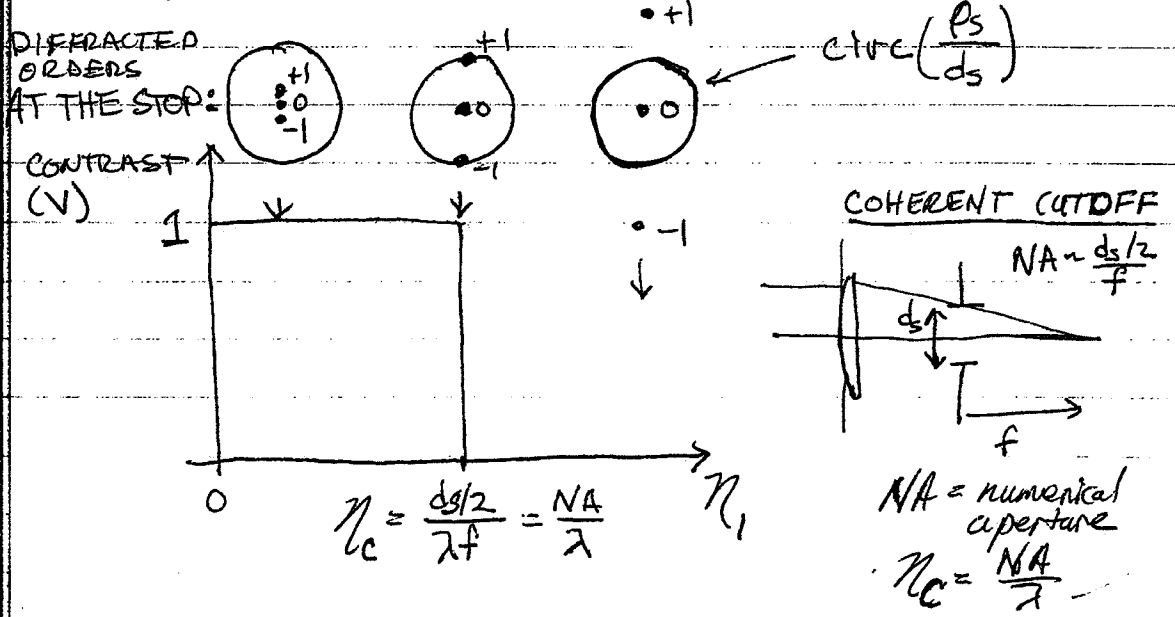 DIFFRACTED
ORDERS
AT THE STOP:
+1
0
-1
+1
0
-1
+1
0
-1
circ(ρs/ds)
CONTRAST
(V)
1
0
ηc = (ds/2)/(λf) = NA/λ
η1
COHERENT CUTOFF
NA ~ (ds/2)/f
ds
f
NA = numerical
aperture
ηc = NA/λ